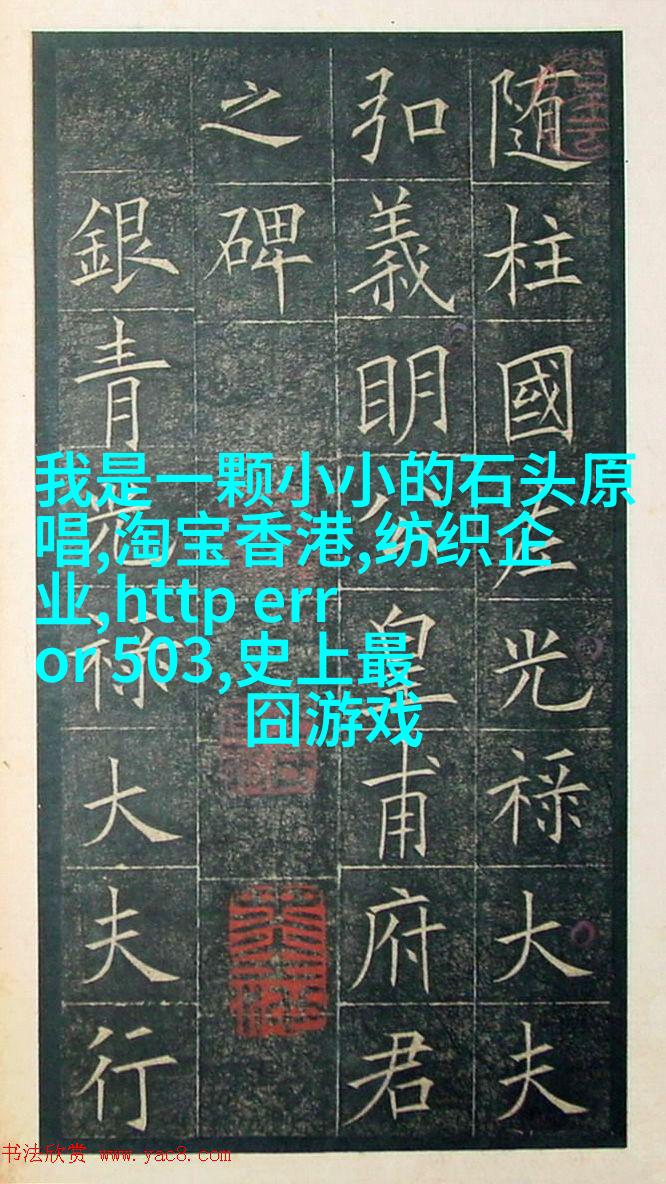 随柱國左光禄大夫
弘義明公皇甫府君
之碑
銀青光禄大夫行
我是一颗小小的石头原
唱,淘宝香港,纺织企
业,http err
or 503,史上最
囧游戏
书法欣赏 www.yac8.com